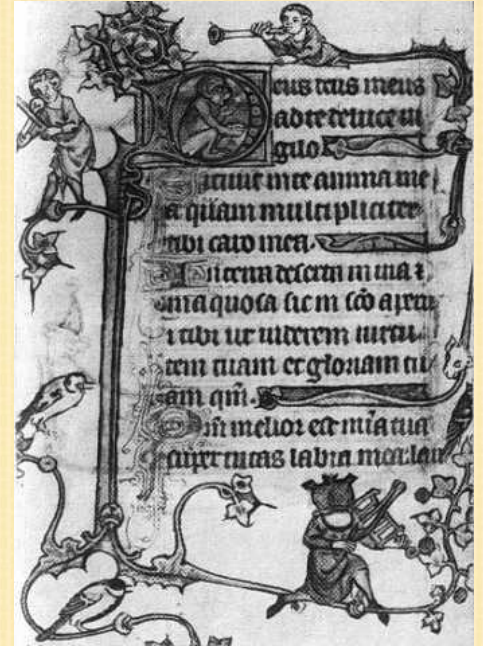 Deus deus meus
ad te de luce ui
gilo
Sitiuit in te anima me
a quam multipliciter
tibi caro mea.
In terra deserta in uia ⁊
ina quosa sic in sc̄o aparu
i tibi ut uiderem uirtu
tem tuam et gloriam tu
am qm̄.
Qm̄ melior est mīa tua
super uitas labia mea lau